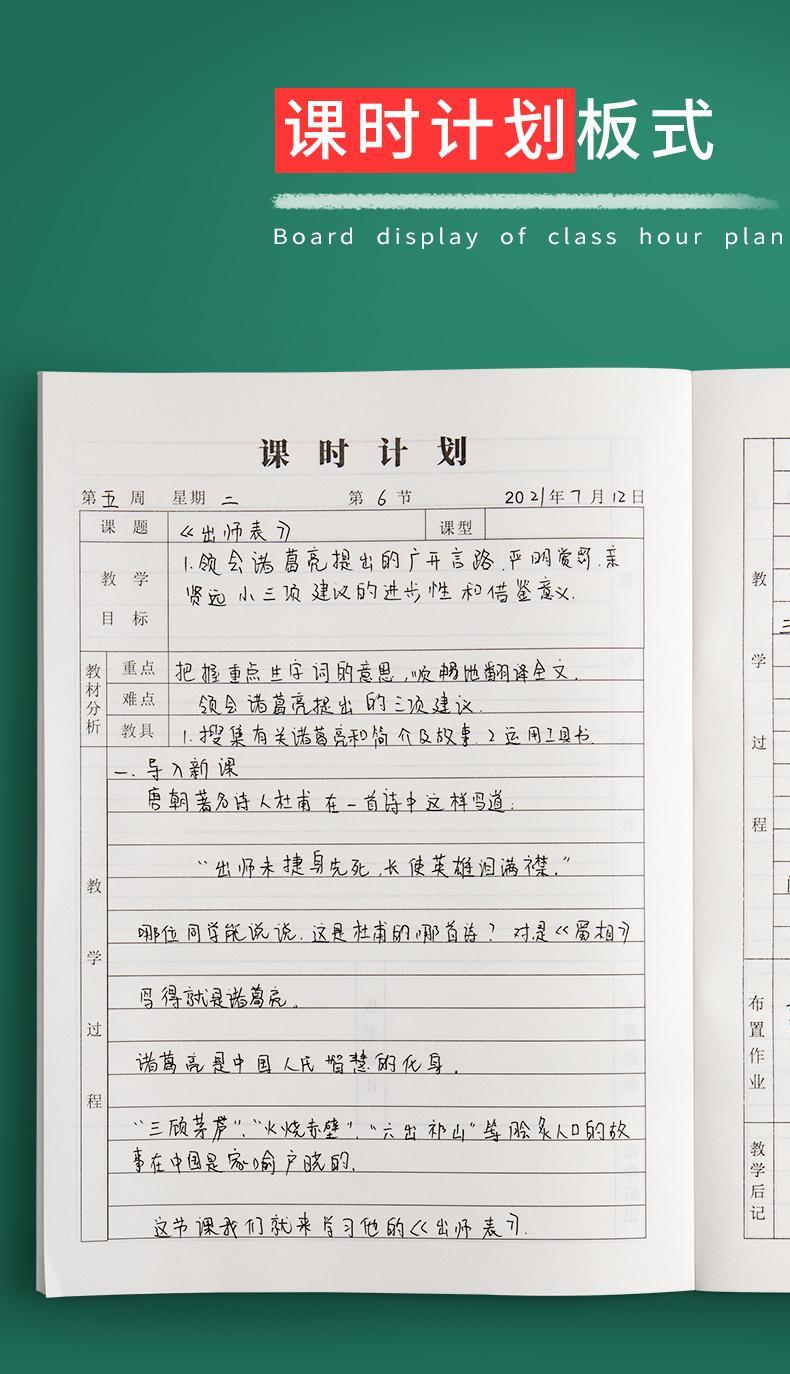 课时计划板式
Board display of class hour plan
课时计划
第五周 星期二 第6节 2021年7月12日
课题 《出师表》 课型
教学目标 1.领会诸葛亮提出的广开言路.严明赏罚.亲
贤远小三项建议的进步性和借鉴意义.
教材分析
重点 把握重点生字词的意思,顺畅地翻译全文.
难点 领会诸葛亮提出的三项建议.
教具 1.搜集有关诸葛亮和简介及故事.2运用工具书.
教学过程
一.导入新课
唐朝著名诗人杜甫在一首诗中这样写道:
“出师未捷身先死,长使英雄泪满襟.”
哪位同学能说说.这是杜甫的哪首诗?对是《蜀相》
写得就是诸葛亮。
诸葛亮是中国人民智慧的化身.
“三顾茅芦”、“火烧赤壁”、“六出祁山”等脍炙人口的故
事在中国是家喻户晓的.
这节课我们就来学习他的《出师表》.
教学过程
布置作业
教学后记